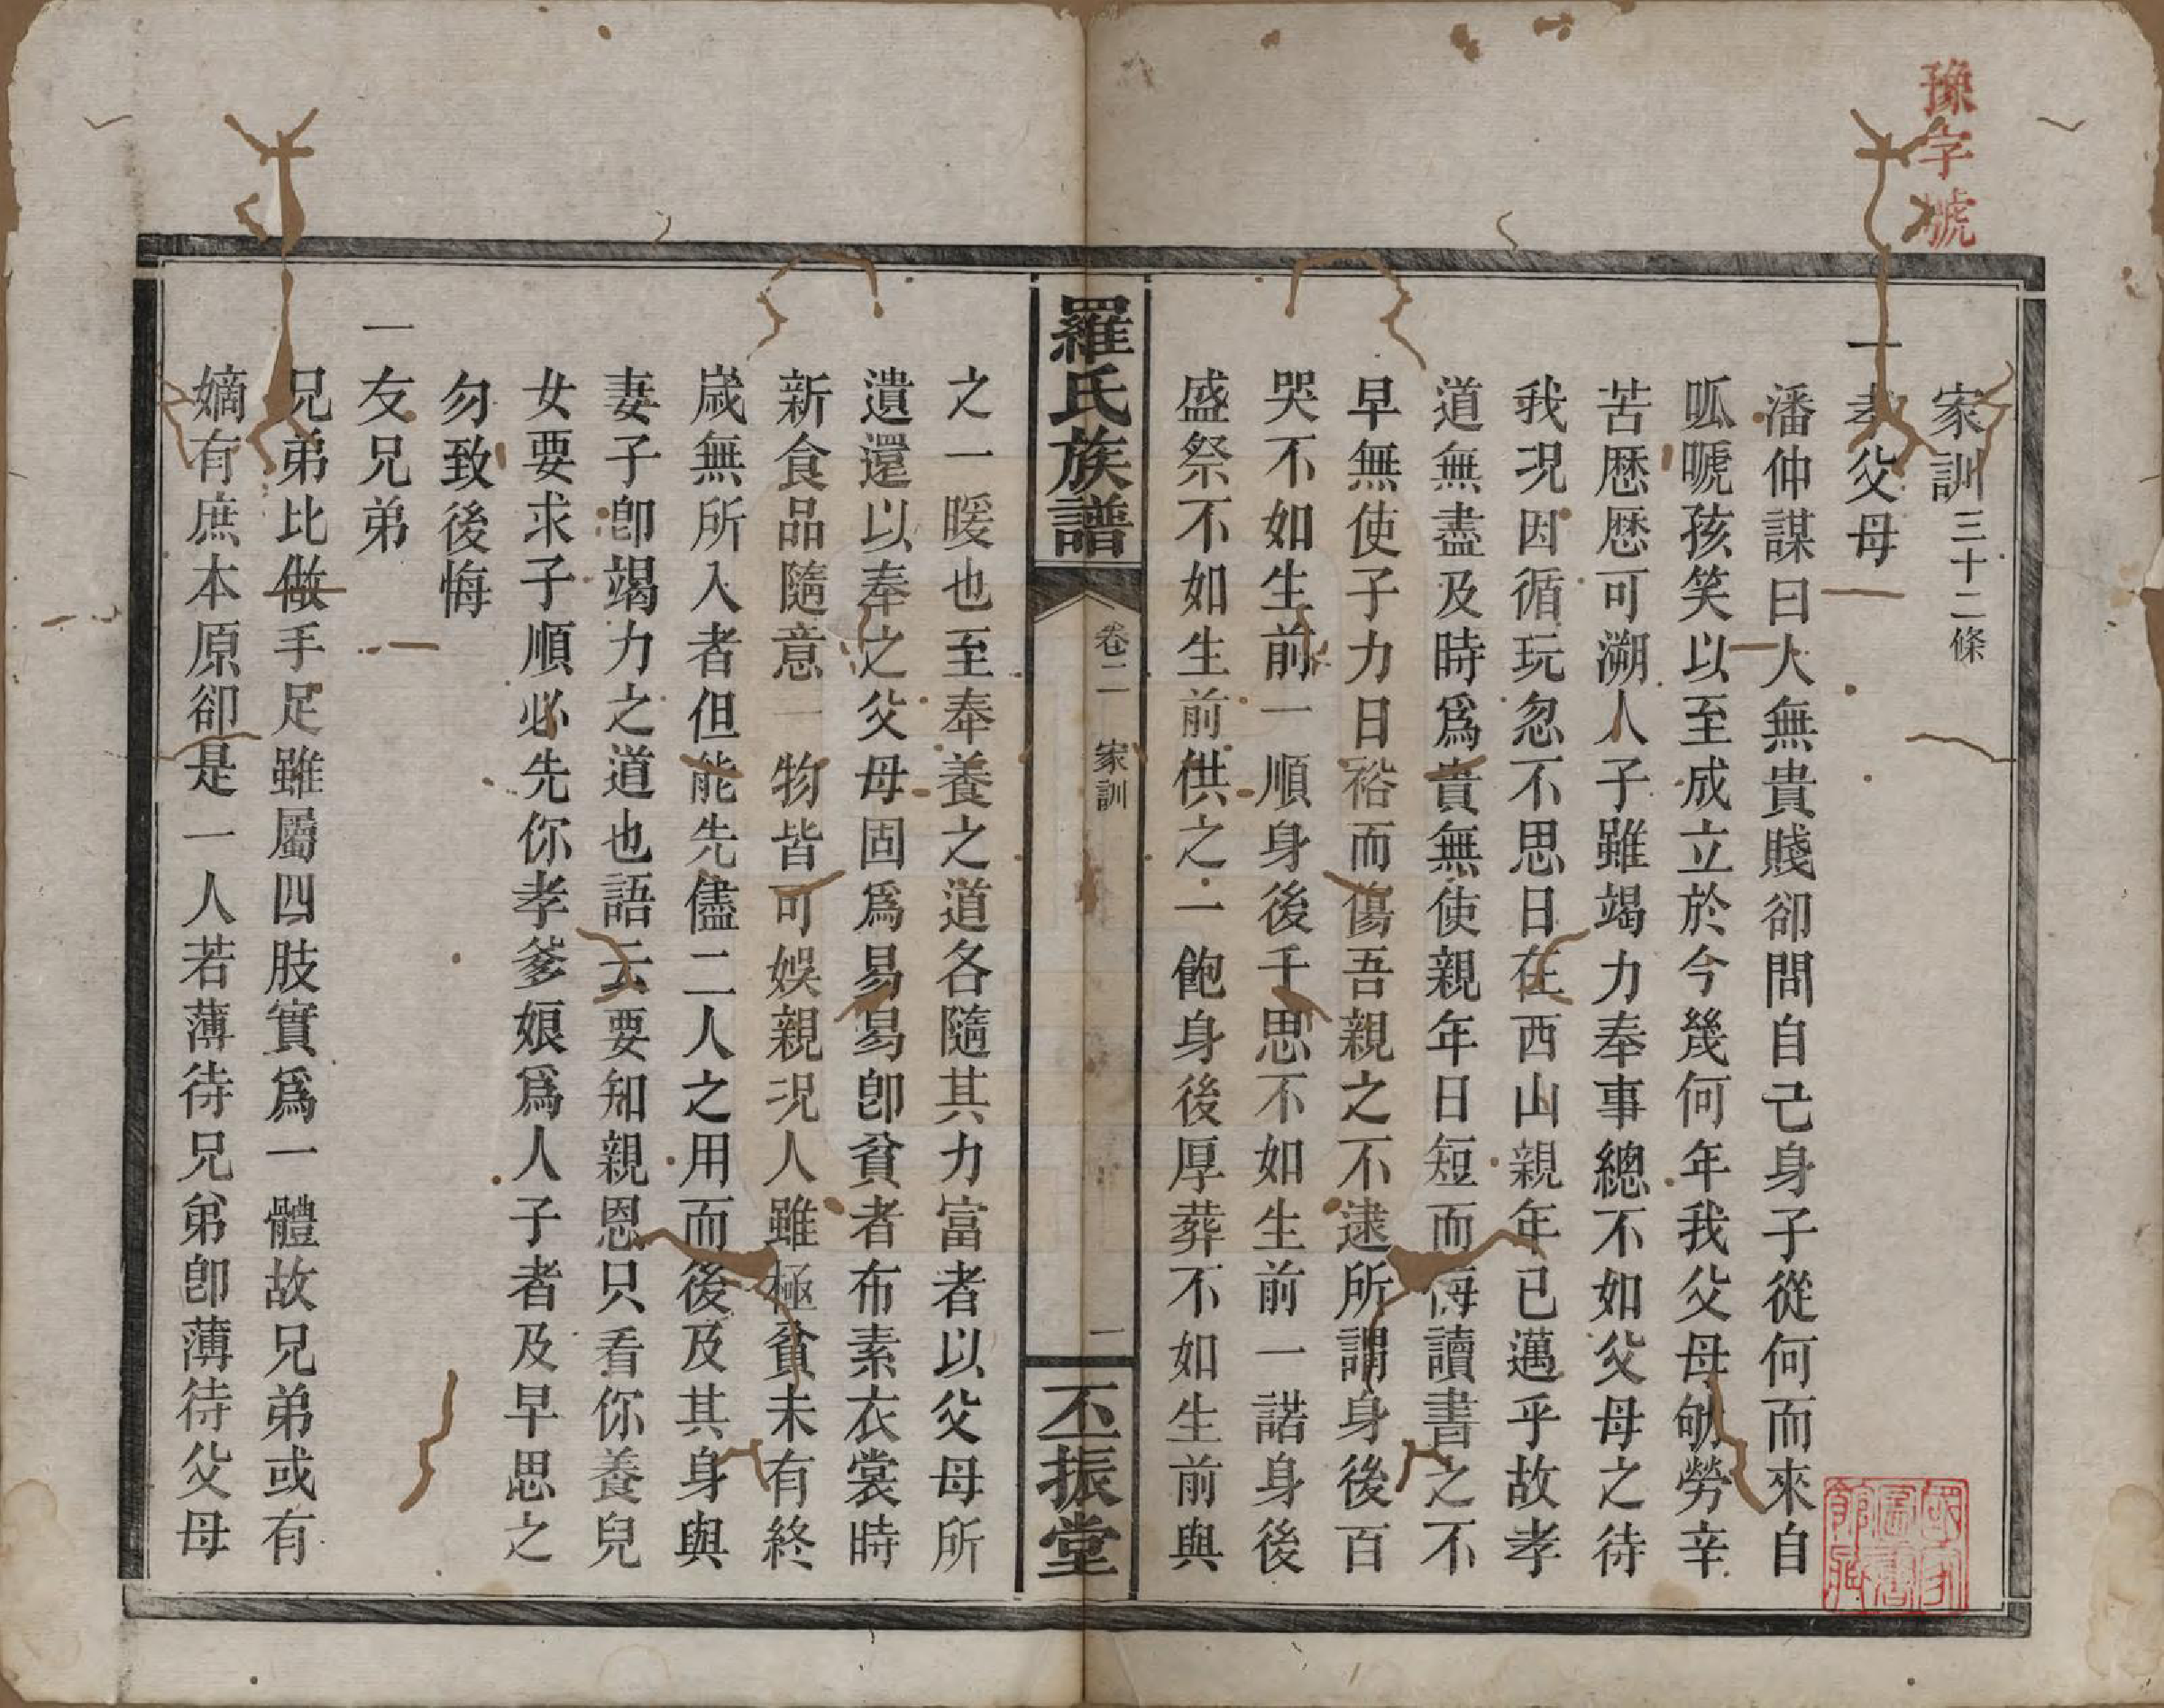 豫字號
家訓三十二條
一孝父母
潘仲謀曰人無貴賤卻問自己身子從何而來自
呱嗁孩笑以至成立於今幾何年我父母劬勞辛
苦歷歷可溯人子雖竭力奉事總不如父母之待
我況因循玩忽不思日在西山親年已邁乎故孝
道無盡及時爲貴無使親年日短而悔讀書之不
早無使子力日裕而傷吾親之不逮所謂身後百
哭不如生前一順身後千思不如生前一諾身後
盛祭不如生前供之一飽身後厚葬不如生前與
羅氏族譜
卷二　家訓
二
丕振堂
之一暖也至奉養之道各隨其力富者以父母所
遺還以奉之父母固爲易易卽貧者布素衣裳時
新食品隨意一物皆可娛親況人雖極貧未有終
歲無所入者但能先儘二人之用而後及其身與
妻子卽竭力之道也語云要知親恩只看你養兒
女要求子順必先你孝爹娘爲人子者及早思之
勿致後悔
一友兄弟
兄弟比做手足雖屬四肢實爲一體故兄弟或有
嫡有庶本原卻是一人若薄待兄弟卽薄待父母
國家圖書館藏